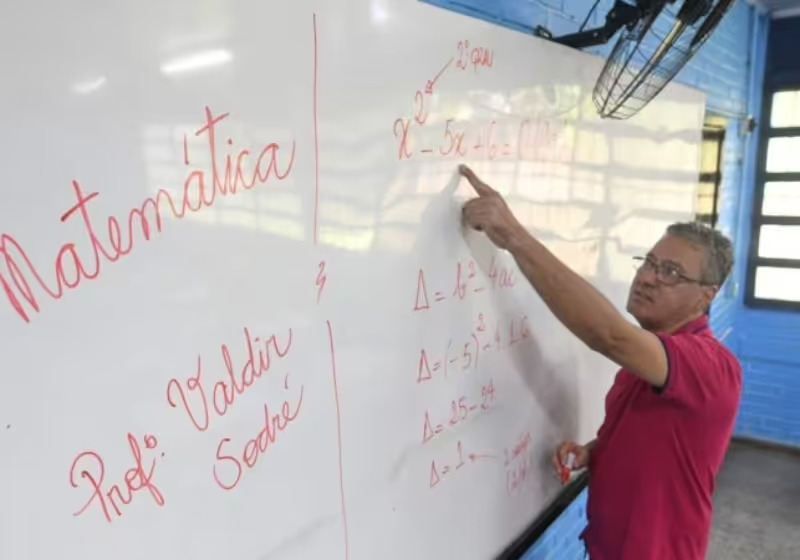 Matemática
Prof.: Valdir
Sodré
2º grau
x² - 5x + 6 = 0
Δ = b² - 4ac
Δ = (-5)² - 4.1.6
Δ = 25 - 24
Δ = 1